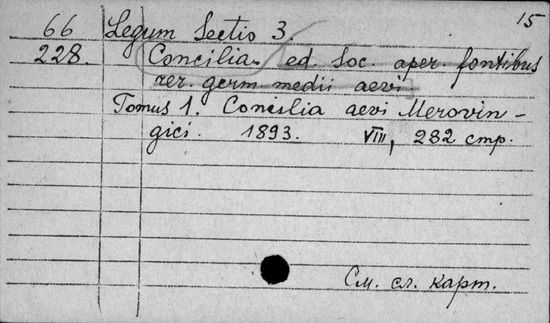 15
66 Legum Sectio 3.
228. Concilia ed. Soc. aper. fontibus
rer. germ. medii aevi
Tomus 1. Concilia aevi Merovin-
gici. 1893. VIII, 282 стр.
См. сл. карт.